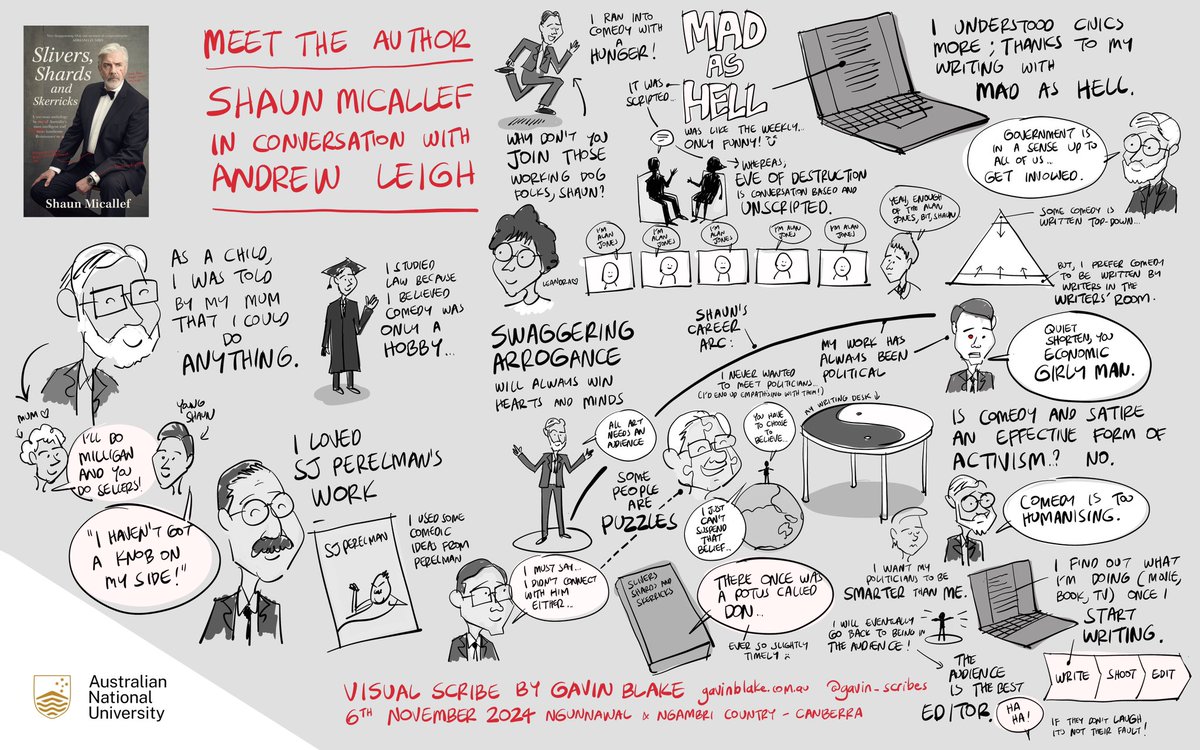 Slivers,
Shards
and
Skerricks
Shaun Micallef
MEET THE AUTHOR
SHAUN MICALLEF
IN CONVERSATION WITH
ANDREW LEIGH
I RAN INTO
COMEDY WITH
A
HUNGER!
WHY DON'T YOU
JOIN THOSE
WORKING DOG
FOLKS, SHAUN?
MAD
AS
HELL
IT WAS
SCRIPTED...
WAS LIKE THE WEEKLY...
ONLY FUNNY!
WHEREAS,
EVE OF DESTRUCTION
IS CONVERSATION BASED AND
UNSCRIPTED.
I UNDERSTOOD CIVICS
MORE; THANKS TO MY
WRITING WITH
MAD AS HELL.
GOVERNMENT IS
IN A SENSE UP TO
ALL OF US..
GET INVOLVED.
LEANDRA
I'M ALAN
JONES
I'M ALAN
JONES
I'M ALAN
JONES
I'M ALAN
JONES
I'M ALAN
JONES
YEAH, ENOUGH
OF THE ALAN
JONES, BIT, SHAUN
SOME COMEDY IS
WRITTEN TOP-DOWN...
BUT, I PREFER COMEDY
TO BE WRITTEN BY
WRITERS IN THE
WRITERS' ROOM.
AS A CHILD,
I WAS TOLD
BY MY MUM
THAT I COULD
DO
ANYTHING.
MUM
YOUNG
SHAUN
I'LL DO
MILLIGAN
AND YOU
DO SELLERS!
"I HAVEN'T GOT
A KNOB ON
MY SIDE!"
I STUDIED
LAW BECAUSE
I BELIEVED
COMEDY WAS
ONLY A
HOBBY...
I LOVED
SJ PERELMAN'S
WORK
SJ PERELMAN
I USED SOME
COMEDIC
IDEAS FROM
PERELMAN
SWAGGERING
ARROGANCE
WILL ALWAYS WIN
HEARTS AND MINDS
SHAUN'S
CAREER
ARC:
MY WORK HAS
ALWAYS BEEN
POLITICAL
QUIET
SHORTEN, YOU
ECONOMIC
GIRLY MAN.
I NEVER WANTED
TO MEET POLITICIANS...
(I'D END UP EMPATHISING WITH THEM!)
ALL ART
NEEDS AN
AUDIENCE
SOME
PEOPLE
ARE
PUZZLES
YOU HAVE
TO CHOOSE
TO
BELIEVE...
I JUST
CAN'T
SUSPEND
THAT
BELIEF...
MY WRITING DESK
IS COMEDY AND SATIRE
AN EFFECTIVE FORM OF
ACTIVISM..? NO.
COMEDY IS TOO
HUMANISING.
I MUST SAY...
I DIDN'T CONNECT
WITH HIM
EITHER..
SLIVERS
SHARDS AND
SKERRICKS
THERE ONCE WAS
A POTUS CALLED
DON...
EVER SO SLIGHTLY
TIMELY
I WANT MY
POLITICIANS TO BE
SMARTER THAN ME.
I WILL EVENTUALLY
GO BACK TO BEING IN
THE AUDIENCE!
THE
AUDIENCE
IS THE BEST
EDITOR.
HA
HA!
I FIND OUT WHAT
I'M DOING (MOVIE,
BOOK, TV) ONCE I
START
WRITING.
WRITE
SHOOT
EDIT
IF THEY DON'T LAUGH
IT'S NOT THEIR FAULT!
Australian
National
University
VISUAL SCRIBE BY GAVIN BLAKE gavinblake.com.au @gavin_scribes
6TH NOVEMBER 2024 NGUNNAWAL & NGAMBRI COUNTRY - CANBERRA